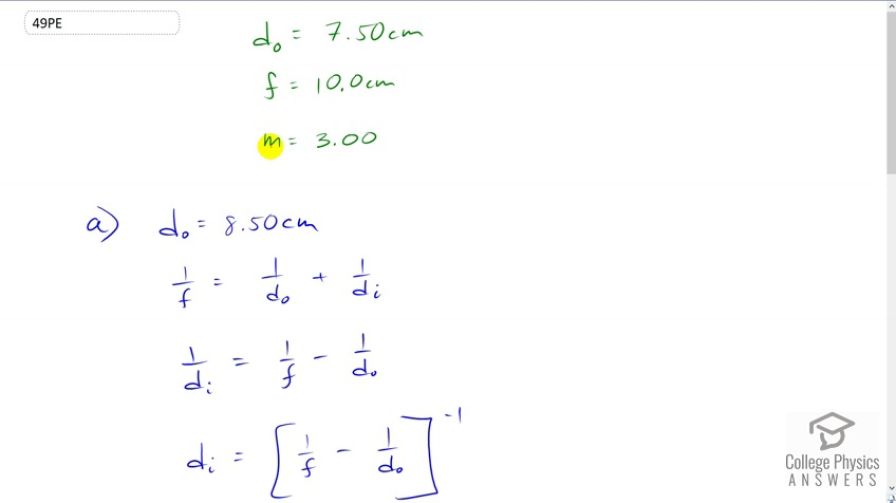 49PE
d₀ = 7.50cm
f = 10.0cm
m = 3.00
a) d₀ = 8.50cm
1/f = 1/d₀ + 1/dᵢ
1/dᵢ = 1/f - 1/d₀
dᵢ = [1/f - 1/d₀]⁻¹
College Physics
ANSWERS